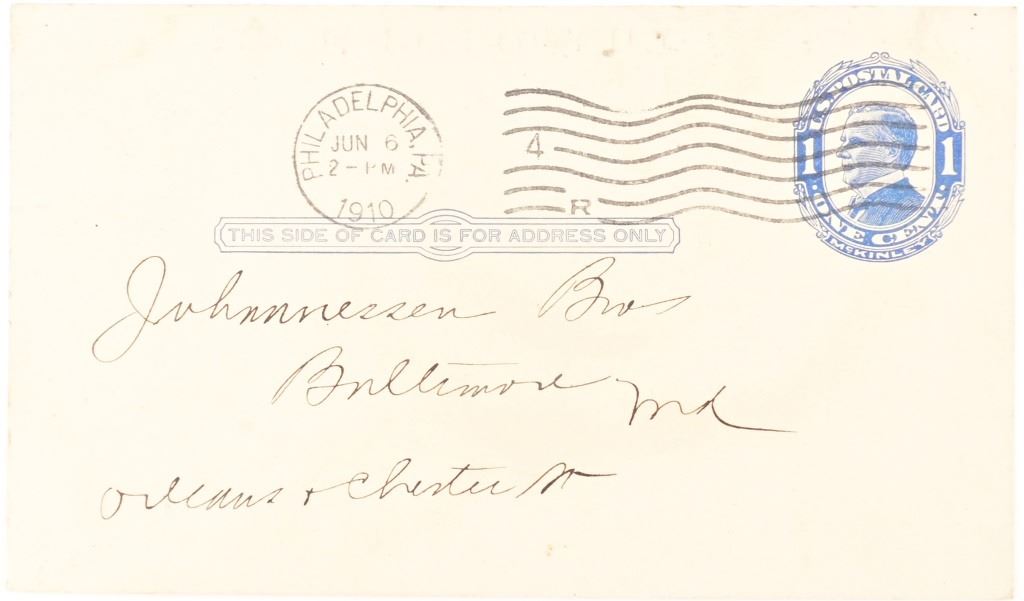 PHILADELPHIA, PA.
JUN 6
2-PM
1910
4
R
U.S. POSTAL CARD
1 1
ONE CENT
McKINLEY
THIS SIDE OF CARD IS FOR ADDRESS ONLY
Johannessen Bros
Baltimore
Md
Orleans + Chester St